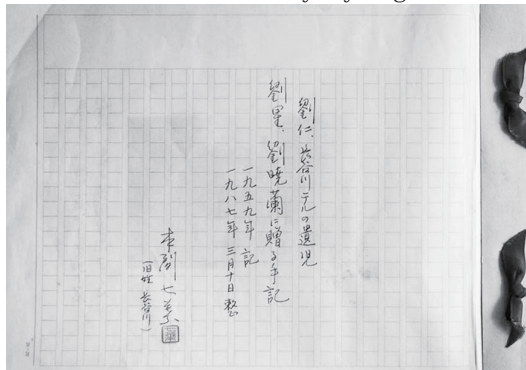 劉仁、長谷川テルの遺児
劉星、劉暁蘭に贈る手記
一九五九年 記
一九八七年 三月十日 整
(旧姓 長谷川)